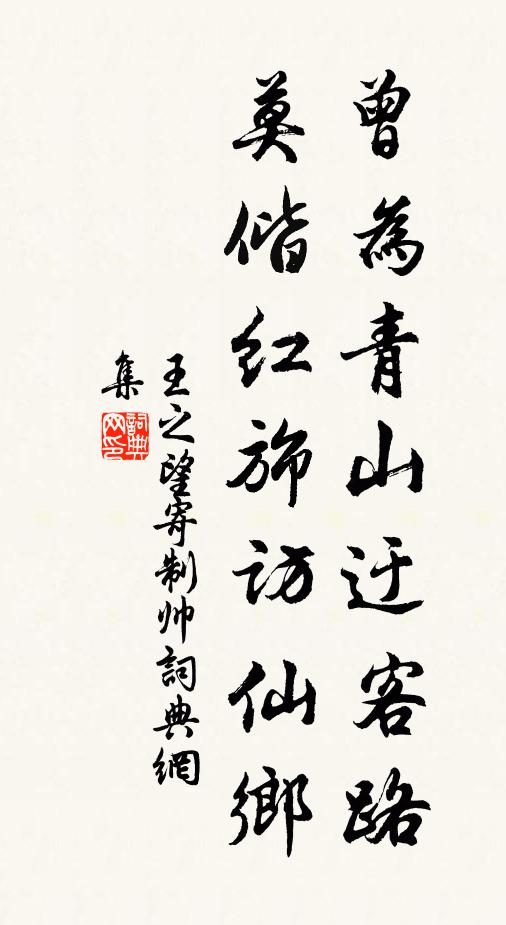 曾為青山迂客路
莫偕紅旆訪仙鄉
王之望寄制帅詞典網
集
詞典
网印